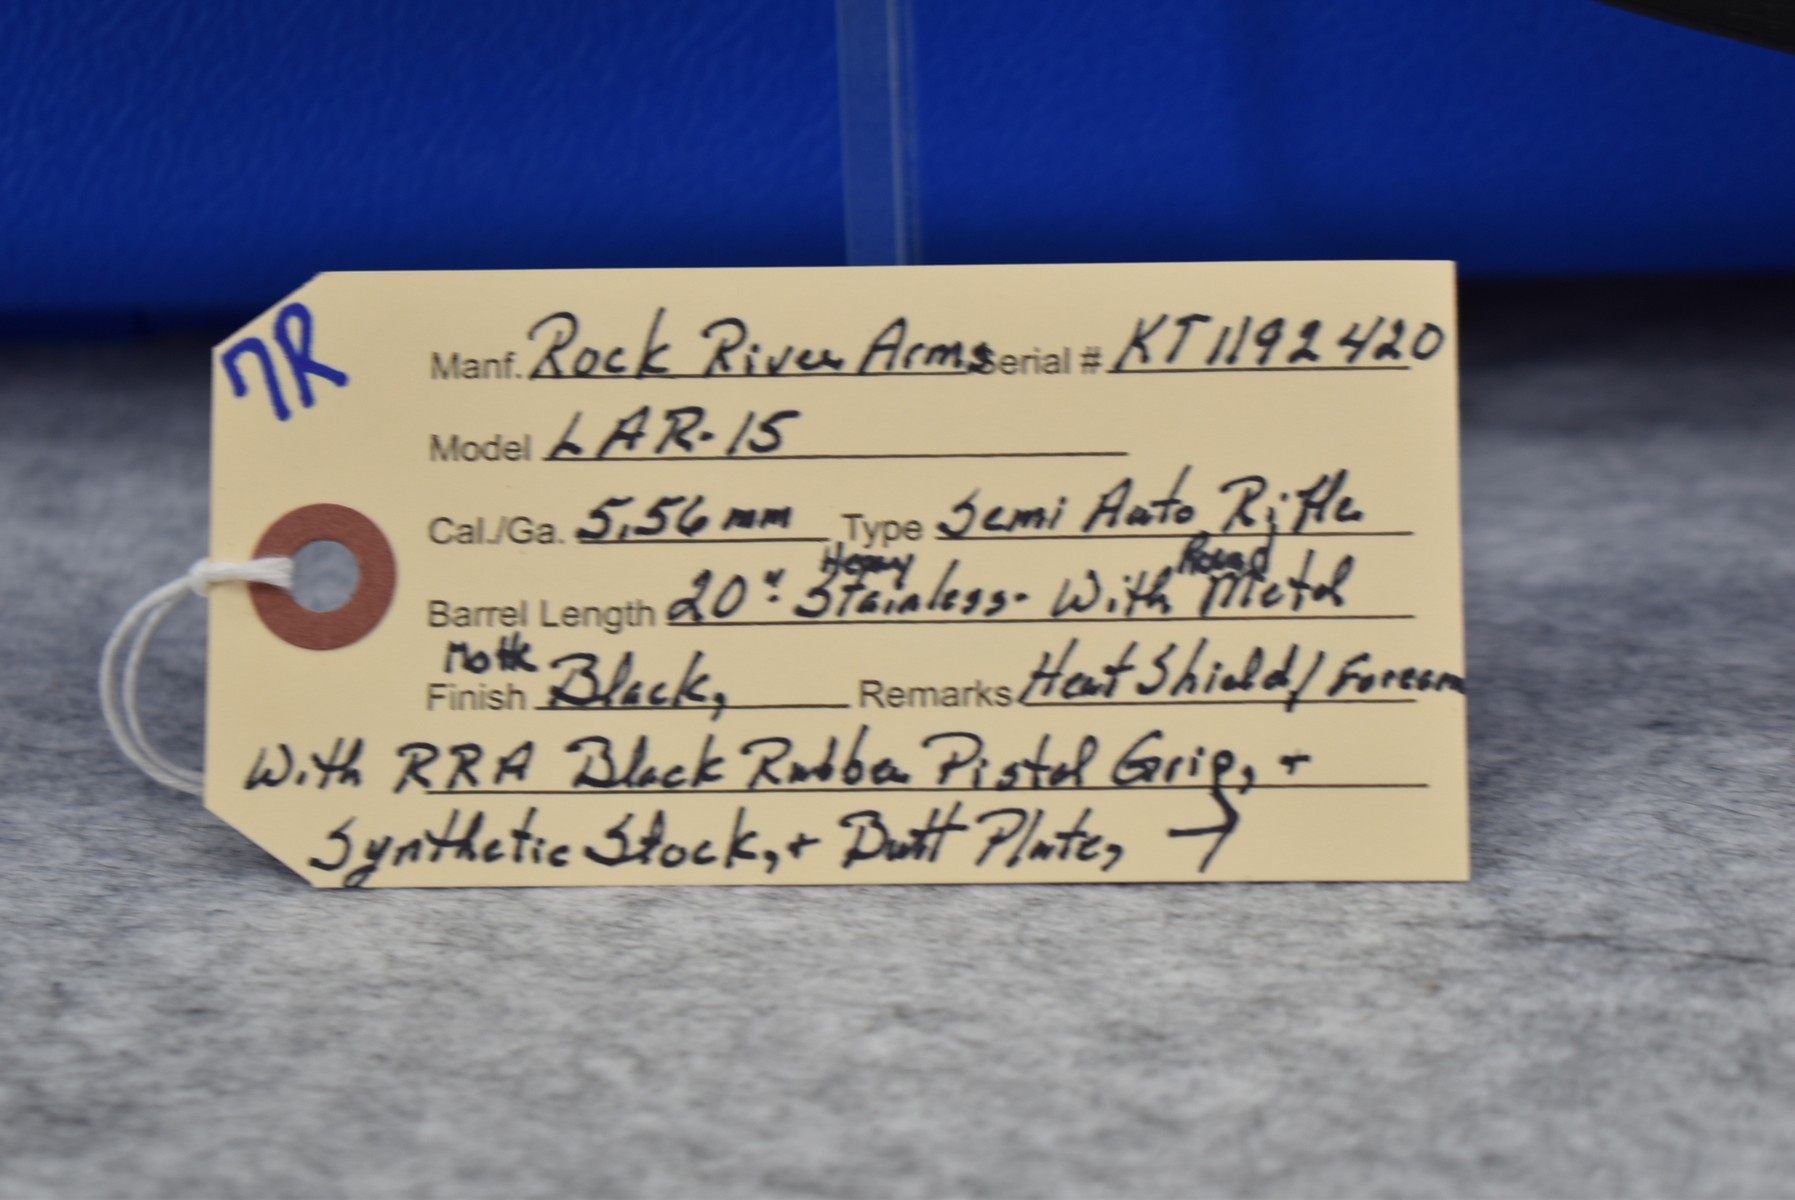 7R
Manf. Rock River Arms Serial # KT1192420
Model LAR-15
Cal./Ga. 5.56 mm Type Semi Auto Rifle
Heavy Round
Barrel Length 20" Stainless. With Metal
Matte
Finish Black, Remarks Heat Shield / Forearm
With RRA Black Rubber Pistol Grip, +
Synthetic Stock, + Butt Plate, →